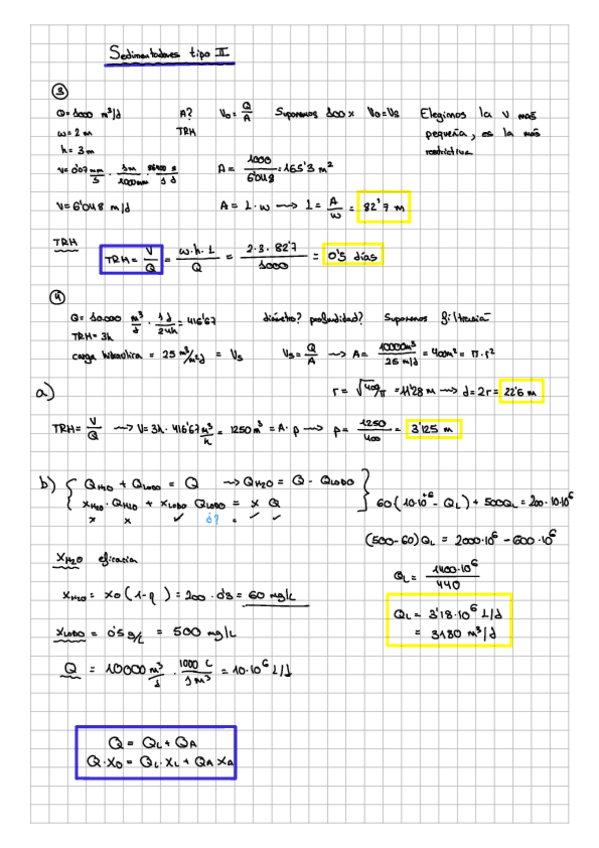 Sedimentadores tipo II
③
Q= 1000 m³/d   A?   V₀= Q/A   Suponemos 100%   V₀=Vs   Elegimos la v más
w= 2 m   TRH   pequeña, es la más
h= 3 m   restrictiva
v= 0'07 mm/s · 1m/1000mm · 86400 s/1 d   A= 1000/6'048 = 165'3 m²
V= 6'048 m/d   A= L·w → L= A/w = 82'7 m
TRH
TRH= V/Q = w·h·L/Q = 2·3·82'7/1000 = 0'5 días
④
Q= 10.000 m³/d · 1d/24h = 416'67   diámetro? profundidad?   Suponemos
TRH= 3h
carga hidráulica = 25 m³/m²d = Vs   Vs= Q/A → A= 10000m³/25 m/d = 400m² = π·r²
a)   r= √400/π = 11'28 m → d=2r= 22'6 m
TRH= V/Q → V= 3h·416'67 m³/h = 1250 m³ = A·p → p= 1250/400 = 3'125 m
b) { Q_H₂O + Q_LODO = Q → Q_H₂O = Q - Q_LODO
x_H₂O · Q_H₂O + x_LODO Q_LODO = x Q } 60(10·10⁶ - Q_L) + 500Q_L = 200·10·10⁶
x x ✓ ¿? = ✓ ✓
(500-60) Q_L = 2000·10⁶ - 600·10⁶
X_H₂O eficacia
Q_L= 1400·10⁶/440
X_H₂O = X₀ (1-η) = 200·0'3 = 60 mg/L
Q_L= 3'18·10⁶ L/d
= 3180 m³/d
X_LODO = 0'5 g/L = 500 mg/L
Q = 10000 m³/d · 1000 L/1 m³ = 10·10⁶ L/d
Q = Q_L + Q_A
Q·X₀ = Q_L·X_L + Q_A X_A